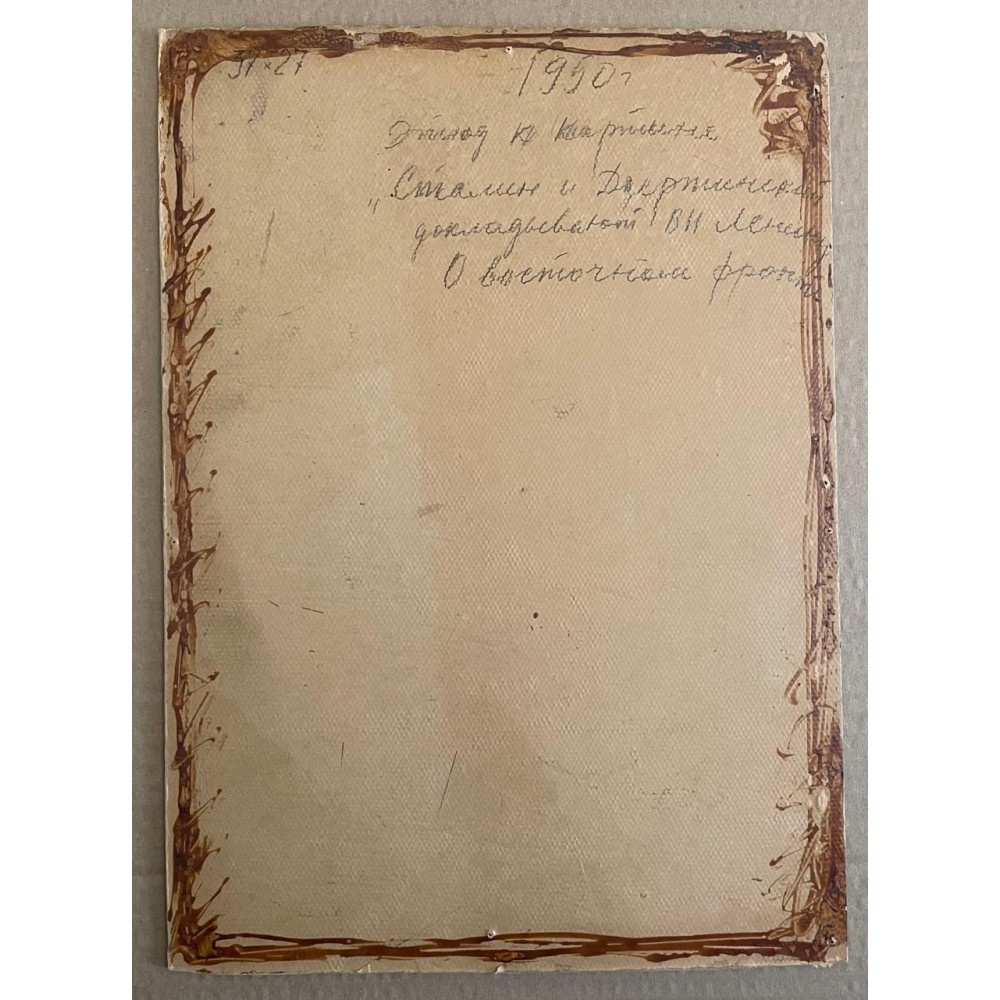 37×27
1950г
Этюд к картине
„Сталин и Дзержинский
докладывают ВИ Ленину
О восточном фронте